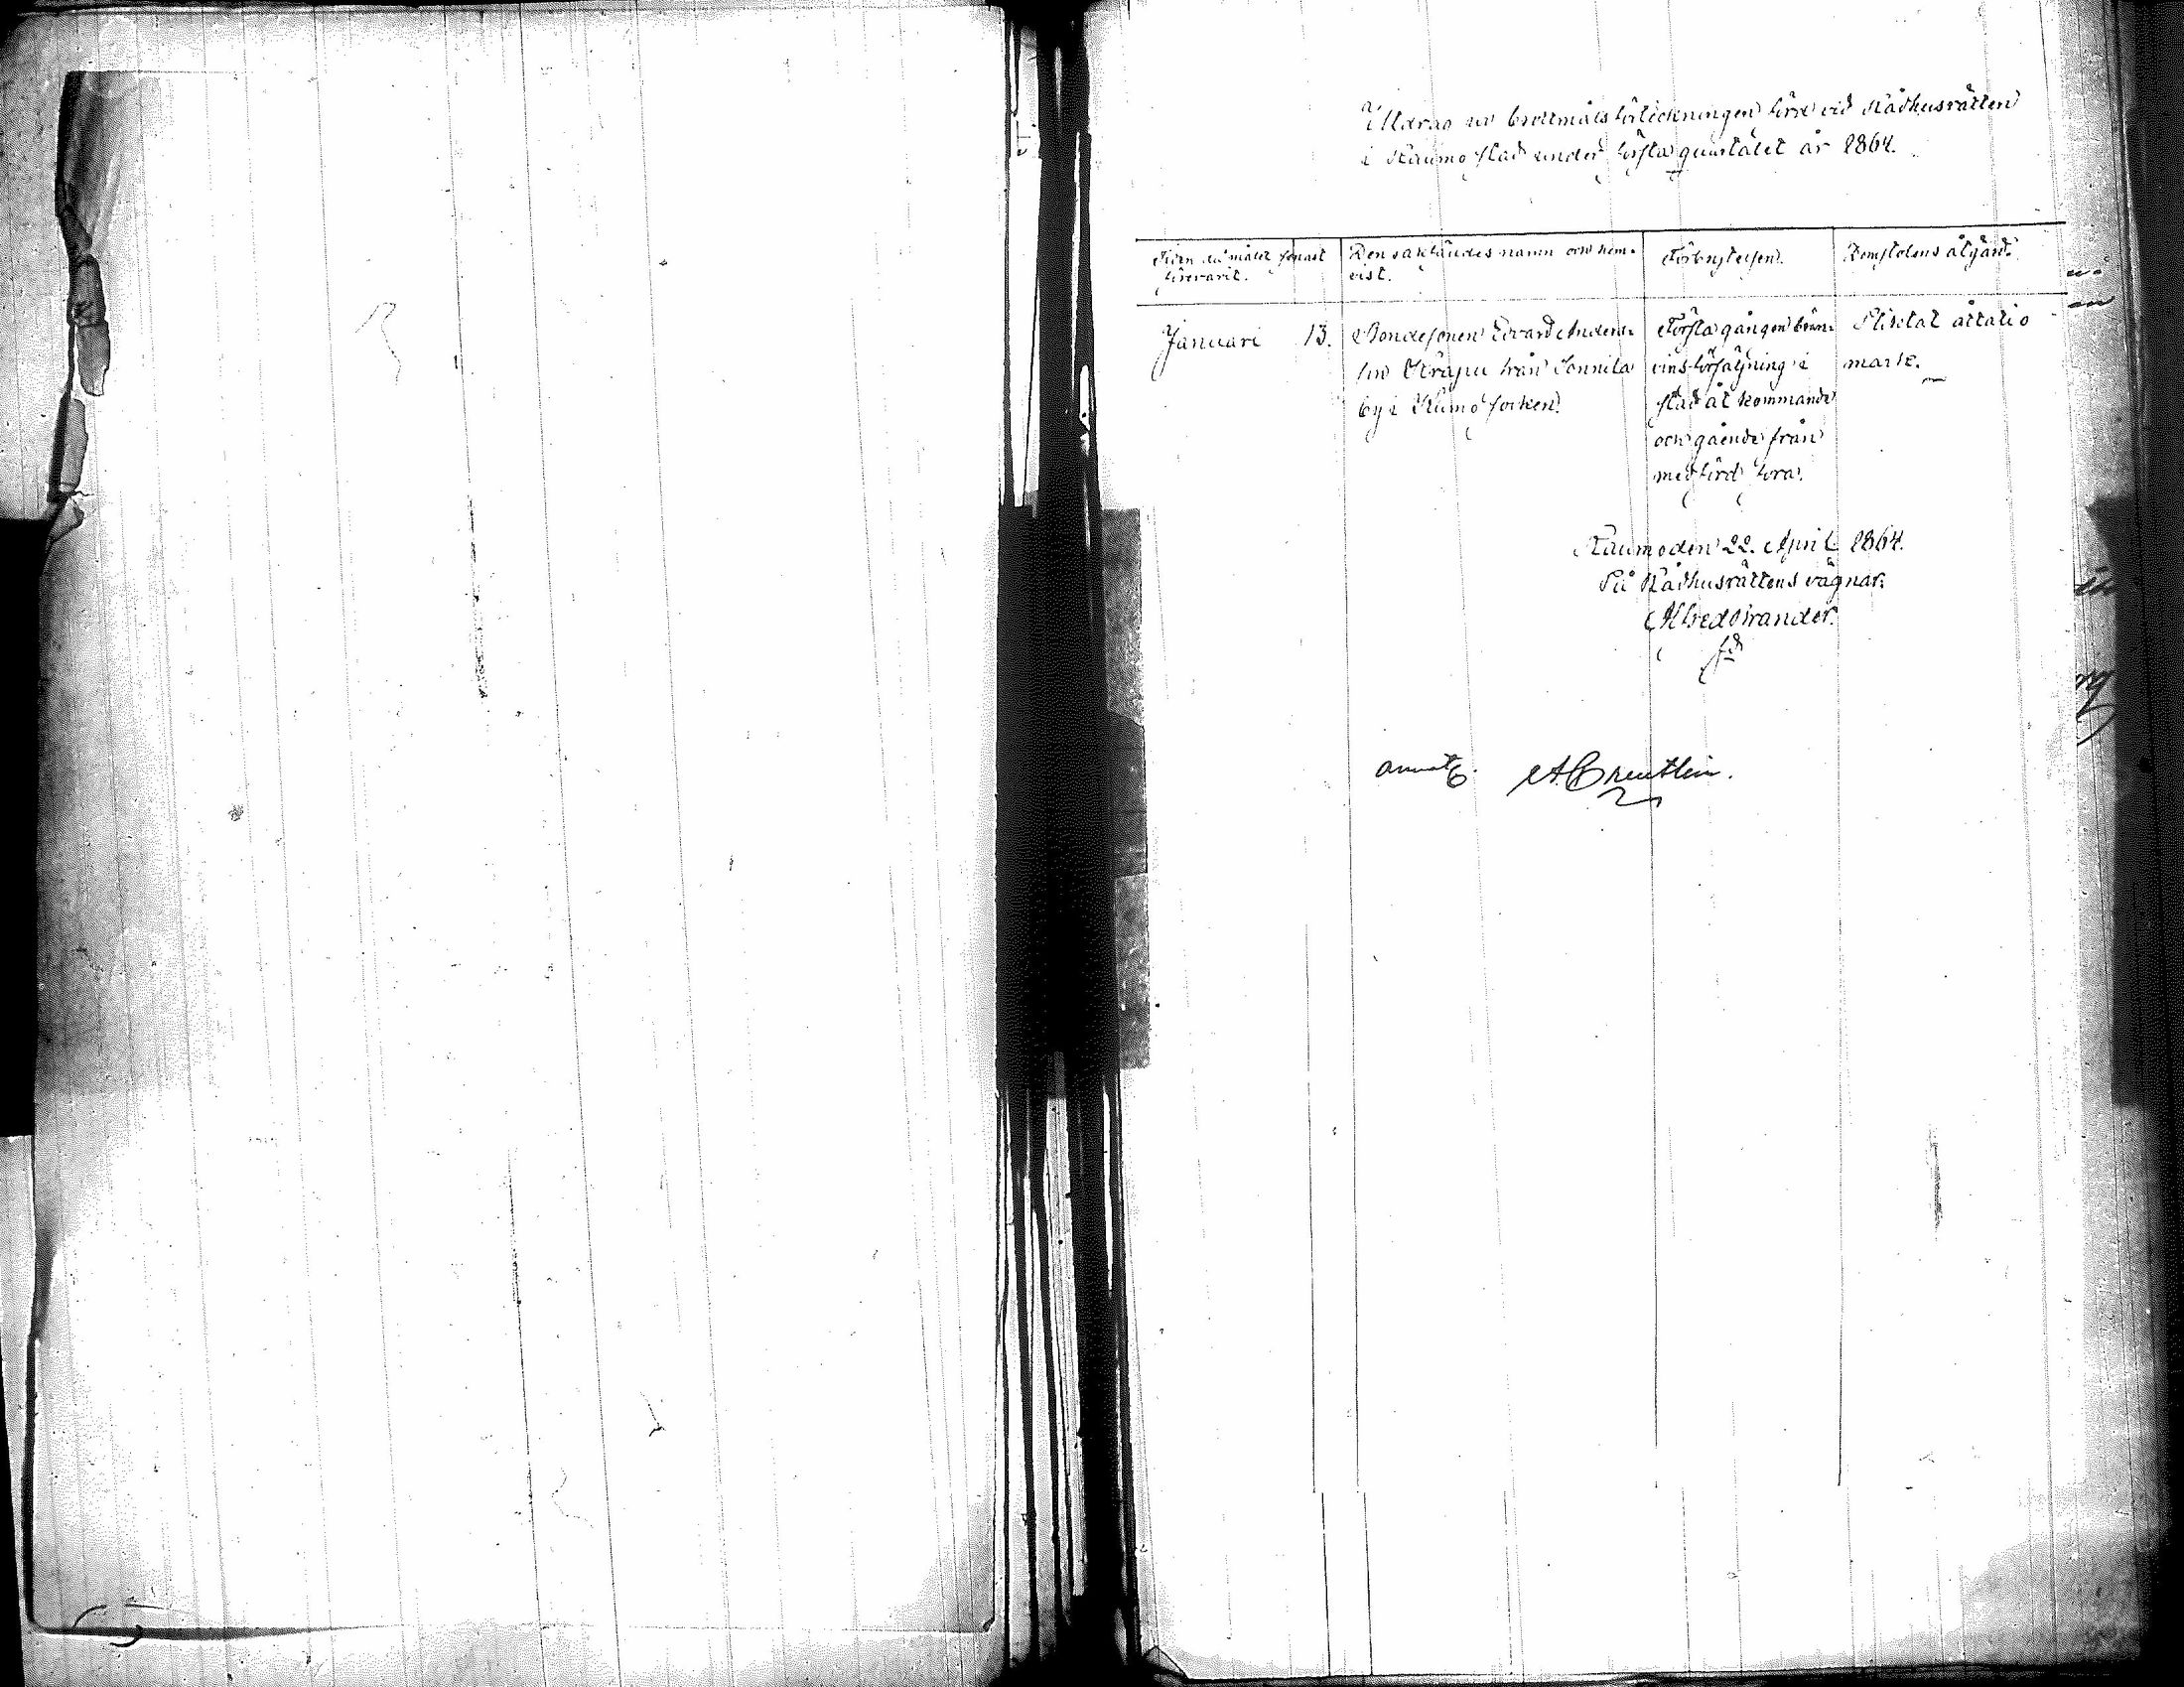 Utdrag ur brottmålsförteckningen förd vid Rådhusrätten
i Raumo stad under första quartalet år 1864.
Tiden då målet senast förevarit.
Den saktäldes namn och hemvist.
Förbrytelsen.
Domstolens åtgärd.
Januari 13.
Bondesonen Edvard Anders-
son från Sonnila
by i Kumo socken.
Första gången brän-
vinsförsäljning i
stad åt kommande
och gående från
medförd fora.
Pliktat åttatio
mark.
Raumo den 22. April 1864.
På Rådhusrättens vägnar:
Alfred Strander.
annot